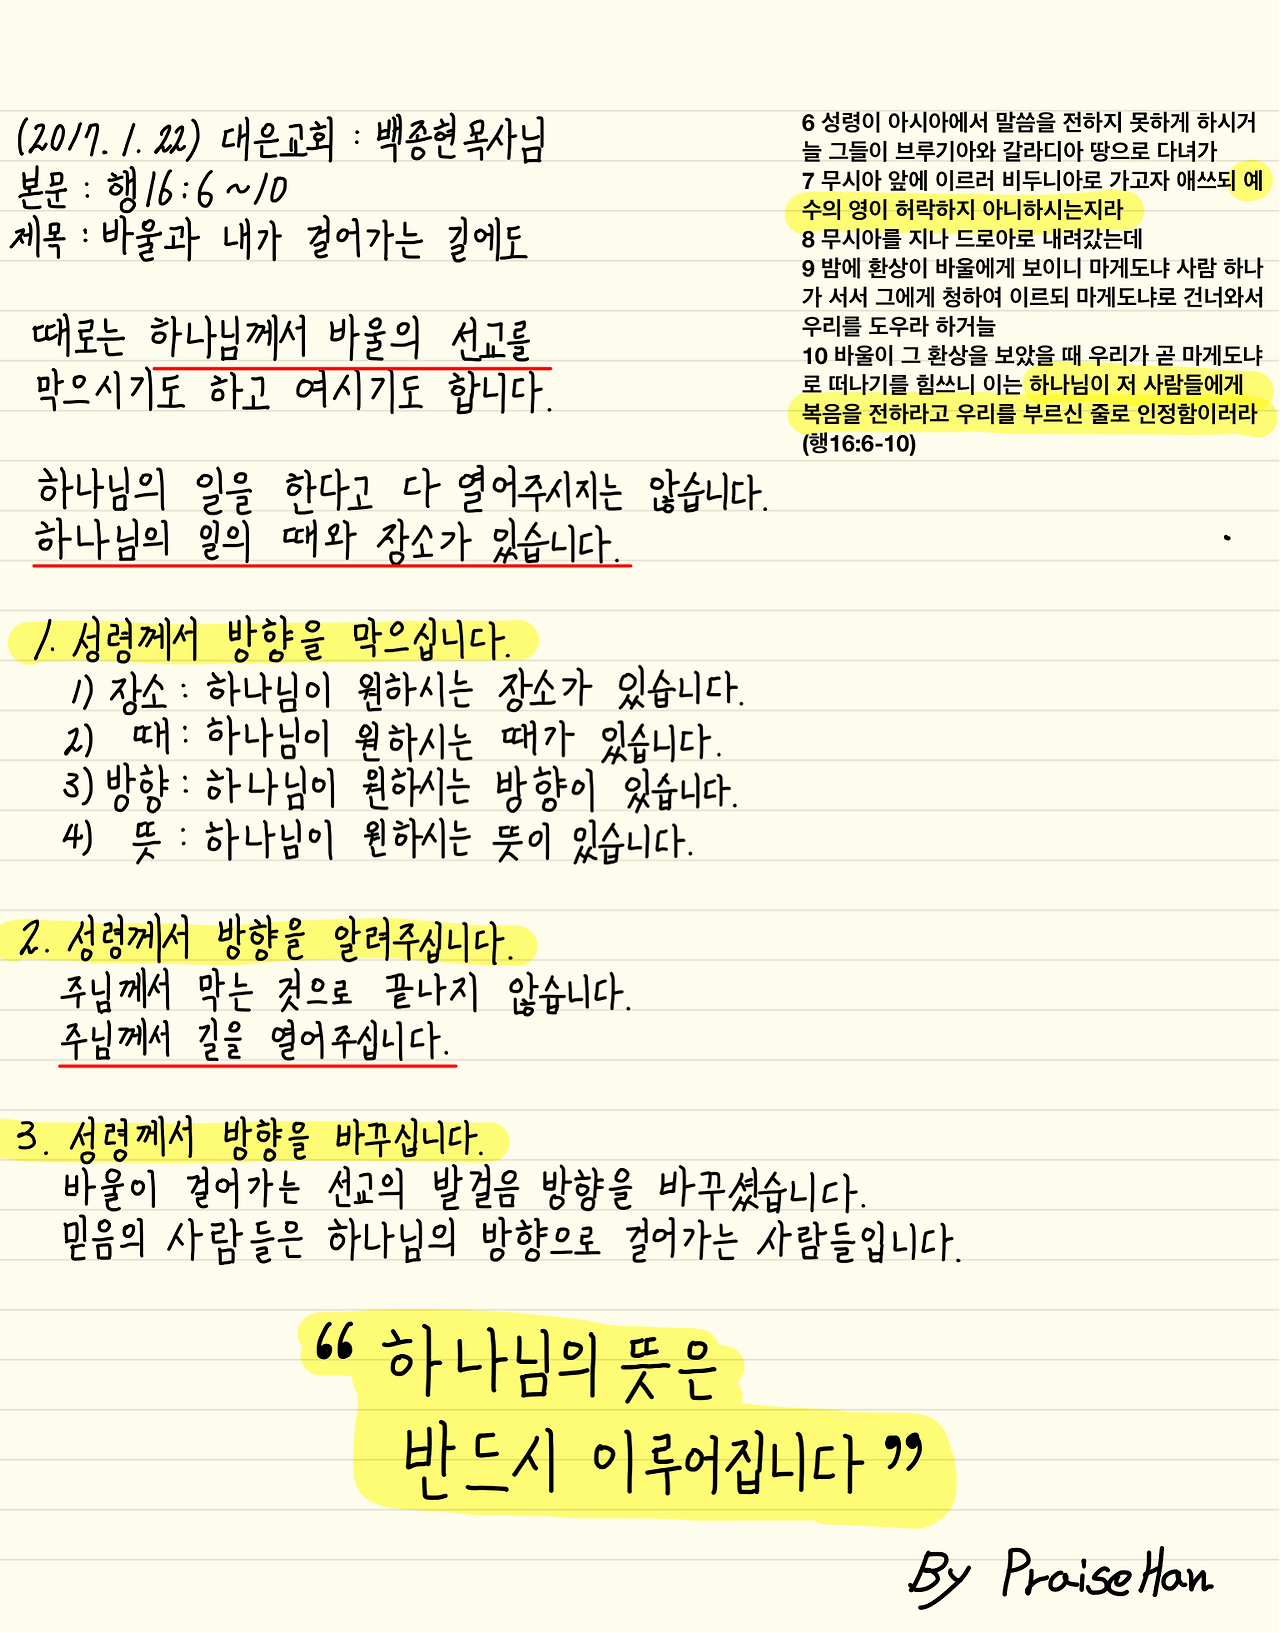 (2017. 1. 22) 대은교회 : 백종현목사님
본문 : 행16:6~10
제목 : 바울과 내가 걸어가는 길에도
6 성령이 아시아에서 말씀을 전하지 못하게 하시거
늘 그들이 브루기아와 갈라디아 땅으로 다녀가
7 무시아 앞에 이르러 비두니아로 가고자 애쓰되 예
수의 영이 허락하지 아니하시는지라
8 무시아를 지나 드로아로 내려갔는데
9 밤에 환상이 바울에게 보이니 마게도냐 사람 하나
가 서서 그에게 청하여 이르되 마게도냐로 건너와서
우리를 도우라 하거늘
10 바울이 그 환상을 보았을 때 우리가 곧 마게도냐
로 떠나기를 힘쓰니 이는 하나님이 저 사람들에게
복음을 전하라고 우리를 부르신 줄로 인정함이러라
(행16:6-10)
때로는 하나님께서 바울의 선교를
막으시기도 하고 여시기도 합니다.
하나님의 일을 한다고 다 열어주시지는 않습니다.
하나님의 일의 때와 장소가 있습니다.
1. 성령께서 방향을 막으십니다.
1) 장소 : 하나님이 원하시는 장소가 있습니다.
2) 때 : 하나님이 원하시는 때가 있습니다.
3) 방향 : 하나님이 원하시는 방향이 있습니다.
4) 뜻 : 하나님이 원하시는 뜻이 있습니다.
2. 성령께서 방향을 알려주십니다.
주님께서 막는 것으로 끝나지 않습니다.
주님께서 길을 열어주십니다.
3. 성령께서 방향을 바꾸십니다.
바울이 걸어가는 선교의 발걸음 방향을 바꾸셨습니다.
믿음의 사람들은 하나님의 방향으로 걸어가는 사람들입니다.
“ 하나님의 뜻은
반드시 이루어집니다 ”
By PraiseHan